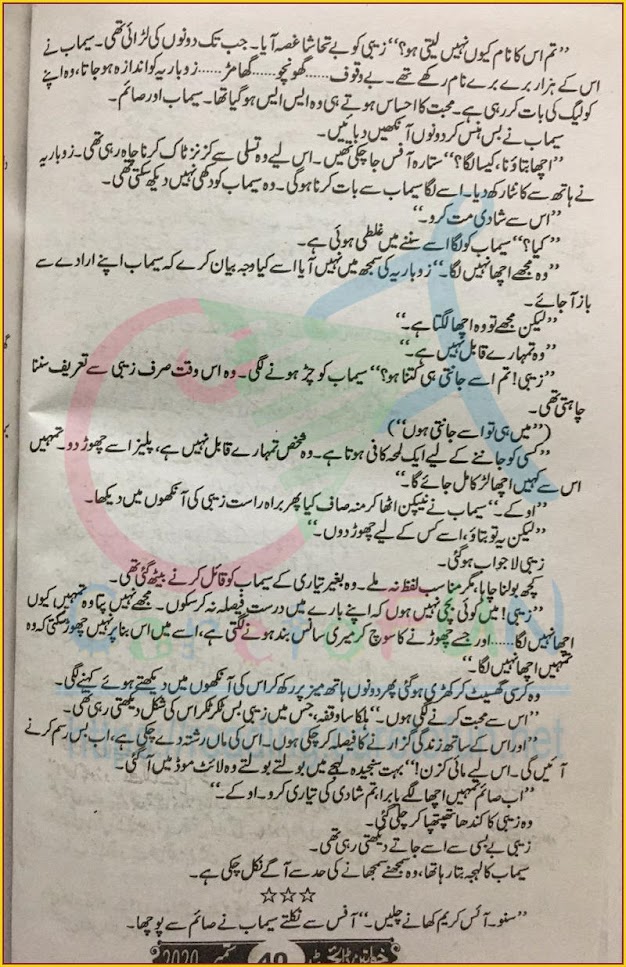 ”تم اس کا نام کیوں نہیں لیتی ہو؟“ زیبی کو بے تحاشا غصہ آیا۔ جب تک دونوں کی لڑائی تھی۔ سیماب نے
اس کے ہزار برے برے نام رکھے تھے۔ بے وقوف...... گھونچو...... گھامڑ...... زوباریہ کو اندازہ ہو جاتا، وہ اپنے
کولیگ کی بات کر رہی ہے۔ محبت کا احساس ہوتے ہی وہ ایس ایس ہو گیا تھا۔ سیماب اور صائم۔
سیماب نے بس ہنس کر دونوں آنکھیں دبائیں۔
”اچھا بتاؤ نا، کیسا لگا؟“ ستارہ آفس جا چکی تھیں۔ اس لیے وہ تسلی سے کزنز ٹاک کرنا چاہ رہی تھی۔ زوباریہ
نے ہاتھ سے کانٹا رکھ دیا۔ اسے لگا سیماب سے بات کرنا ہوگی۔ وہ سیماب کو دکھی نہیں دیکھ سکتی تھی۔
”اس سے شادی مت کرو۔“
”کیا؟“ سیماب کو لگا اسے سننے میں غلطی ہوئی ہے۔
”وہ مجھے اچھا نہیں لگا۔“ زوباریہ کی سمجھ میں نہیں آیا اسے کیا وجہ بیان کرے کہ سیماب اپنے ارادے سے
باز آ جائے۔
”لیکن مجھے تو وہ اچھا لگتا ہے۔“
”وہ تمہارے قابل نہیں ہے۔“
”زیبی! تم اسے جانتی ہی کتنا ہو؟“ سیماب کو چڑ ہونے لگی۔ وہ اس وقت صرف زیبی سے تعریف سننا
چاہتی تھی۔
(”میں ہی تو اسے جانتی ہوں“)
”کسی کو جاننے کے لیے ایک لمحہ کافی ہوتا ہے۔ وہ شخص تمہارے قابل نہیں ہے، پلیز اسے چھوڑ دو۔ تمہیں
اس سے کہیں اچھا لڑکا مل جائے گا۔“
”اوکے۔“ سیماب نے نیپکن اٹھا کر منہ صاف کیا پھر براہ راست زیبی کی آنکھوں میں دیکھا۔
”لیکن یہ تو بتاؤ، اسے کس کے لیے چھوڑ دوں۔“
زیبی لاجواب ہوگئی۔
کچھ بولنا چاہا، مگر مناسب لفظ نہ ملے۔ وہ بغیر تیاری کے سیماب کو قائل کرنے بیٹھ گئی تھی۔
”زیبی! میں کوئی بچی نہیں ہوں کہ اپنے بارے میں درست فیصلہ نہ کر سکوں۔ مجھے نہیں پتا وہ تمہیں کیوں
اچھا نہیں لگا...... اور جسے چھوڑنے کا سوچ کر میری سانس بند ہونے لگتی ہے، اسے میں اس بنا پر نہیں چھوڑ سکتی کہ وہ
تمہیں اچھا نہیں لگا۔“
وہ کرسی گھسیٹ کر کھڑی ہوگئی پھر دونوں ہاتھ میز پر رکھ کر اس کی آنکھوں میں دیکھتے ہوئے کہنے لگی۔
”اس سے محبت کرنے لگی ہوں۔“ ہلکا سا وقفہ، جس میں زیبی بس ٹکر ٹکر اس کی شکل دیکھتی رہی تھی۔
”اور اس کے ساتھ زندگی گزارنے کا فیصلہ کر چکی ہوں۔ اس کی ماں رشتہ دے چکی ہے، اب بس رسم کرنے
آئیں گی۔ اس لیے مائی کزن!“ بہت سنجیدہ لہجے میں بولتے بولتے وہ لائٹ موڈ میں آگئی۔
”اب صائم تمہیں اچھا لگے یا برا، تم شادی کی تیاری کرو۔ اوکے۔“
وہ زیبی کا کندھا تھپتھپا کر چلی گئی۔
زیبی بے بسی سے اسے جاتے دیکھتی رہی تھی۔
سیماب کا لہجہ بتا رہا تھا، وہ سمجھنے سمجھانے کی حد سے آگے نکل چکی ہے۔
☆☆☆
”سنو۔ آئس کریم کھانے چلیں۔“ آفس سے نکلتے سیماب نے صائم سے پوچھا۔
خواتین ڈائجسٹ 40 ستمبر 2020